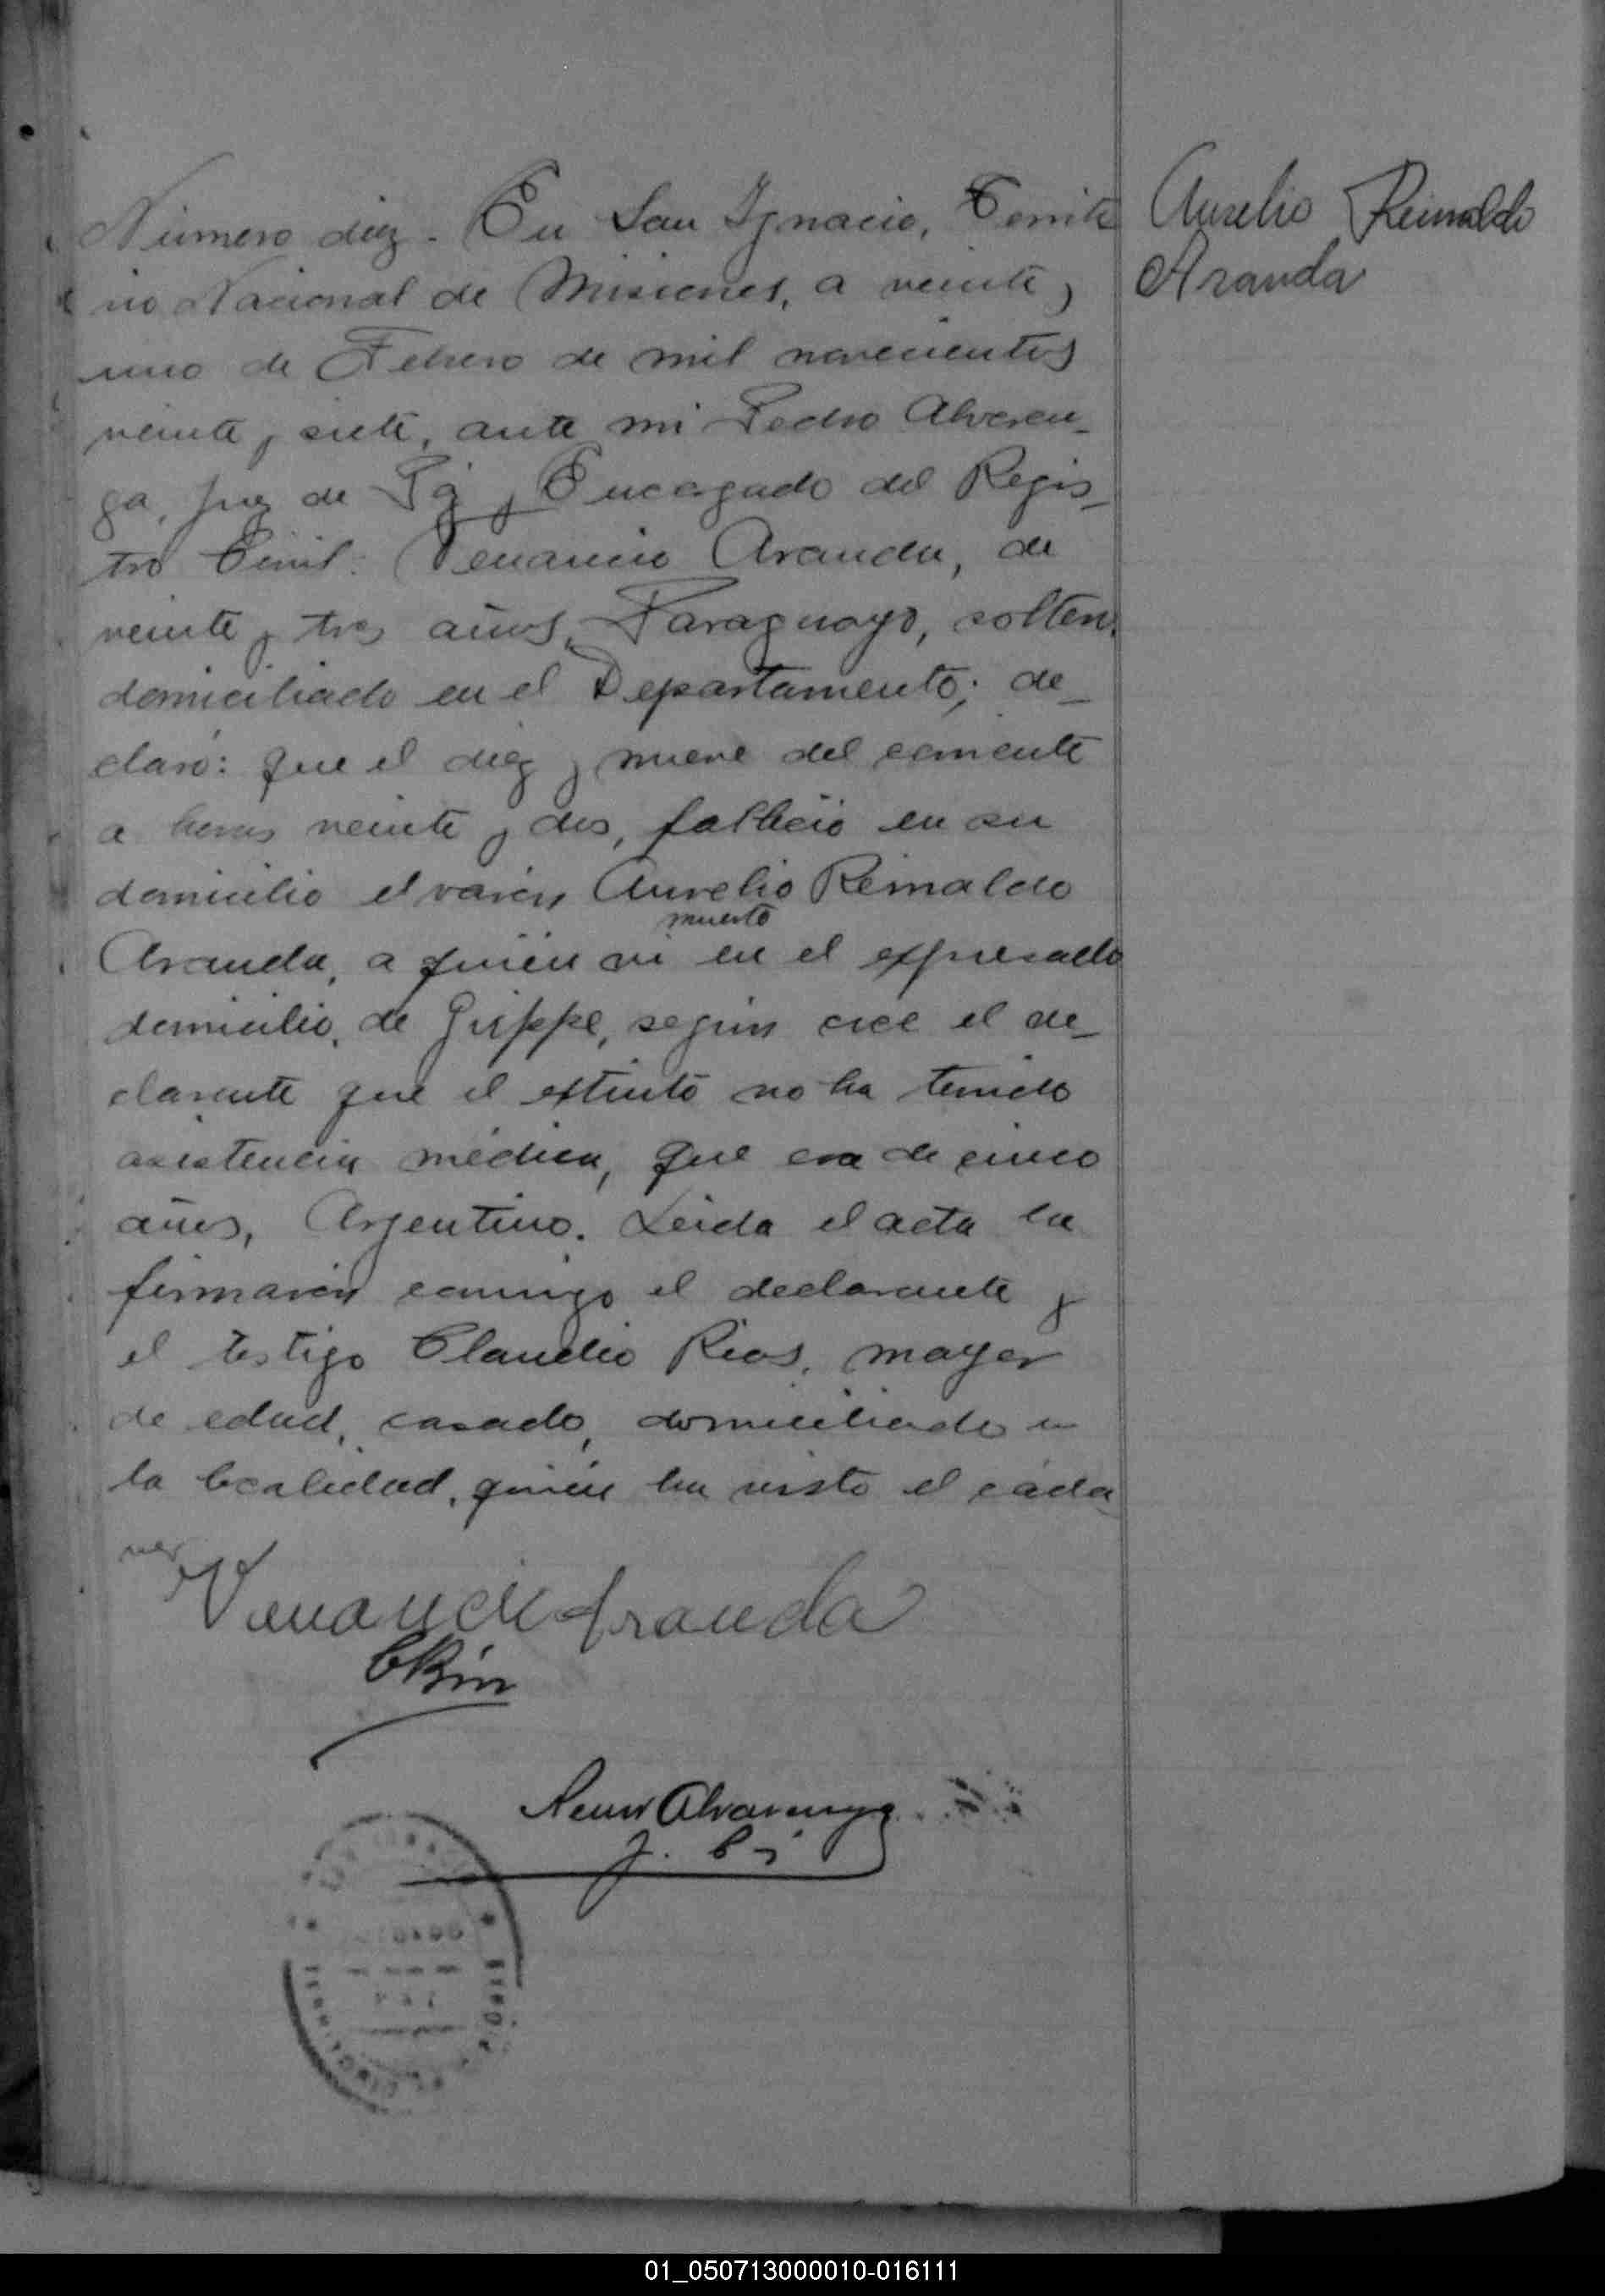 Número diez. En San Ignacio, Territo
rio Nacional de Misiones, a veinte y
uno de Febrero de mil novecientos
veinte y siete, ante mi Pedro Alvaren-
ga, Juez de Paz y Encargado del Regis-
tro Civil: Venancio Aranda, de
veinte y tres años, Paraguayo, soltero,
domiciliado en el Departamento; de-
claró: que el diez y nueve del corriente
a horas veinte y dos, falleció en su
domicilio el varón Aurelio Reinaldo
muerto
Aranda, a quien vi en el expresado
domicilio, de Grippe, según cree el de-
clarante que el extinto no ha tenido
asistencia médica, que era de cinco
años, Argentino. Leida el acta la
firmarón conmigo el declarante y
el testigo Claudio Rios, mayor
de edad, casado, domiciliado en
la localidad, quien ha visto el cada
ver
Venancio Aranda
CRios
Alvarenga
Aurelio Reinaldo
Aranda
01_050713000010-016111